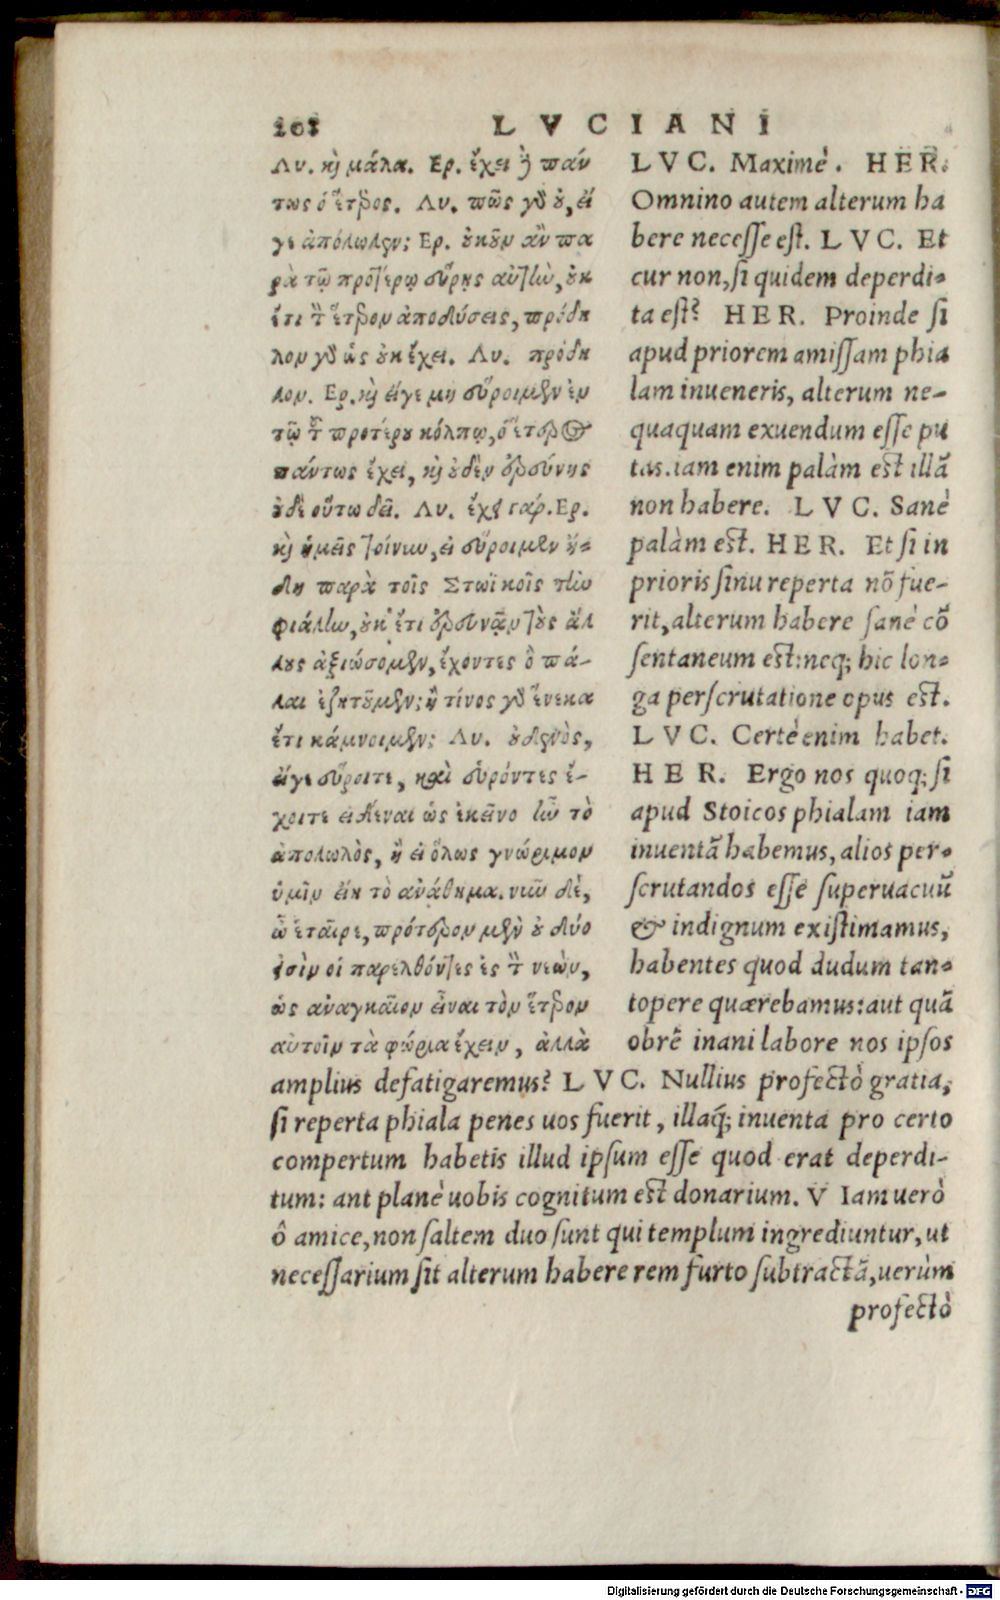 LVCIANI
Λυ. καὶ μάλα. Ερ. ἔχει δὲ πάν
τως ὁ ἕτερος. Λυ. πῶς γὰρ οὐ, εἴ
γε ἀπόλωλεν; Ερ. οὐκοῦν ἂν πα
ρὰ τῷ προτέρῳ εὕρης αὐτὴν, οὐκ
ἔτι τὸν ἕτερον ἀποδύσεις, πρόδη
λον γὰρ ὡς οὐκ ἔχει. Λυ. πρόδη
λον. Ερ. καὶ εἴγε μὴ εὕροιμεν ἐν
τῷ τοῦ προτέρου κόλπῳ, ὁ ἕτερος
πάντως ἔχει, καὶ οὐδὲν ἐρεύνης
οὐδὲ οὕτω δεῖ. Λυ. ἔχει γάρ. Ερ.
καὶ ἡμεῖς τοίνυν, εἰ εὕροιμεν ἤ-
δη παρὰ τοῖς Στωϊκοῖς τὴν
φιάλην, οὐκ ἔτι ἐρευνᾷν τοὺς ἄλ
λους ἀξιώσομεν, ἔχοντες ὃ πά-
λαι ἐζητοῦμεν; ἢ τίνος γὰρ ἕνεκα
ἔτι κάμνοιμεν; Λυ. οὐδενὸς,
εἴγε εὕροιτε, καὶ εὑρόντες ἔ-
χοιτε εἰδέναι ὡς ἐκεῖνο ἦν τὸ
ἀπολωλὸς, ἢ εἰ ὅλως γνώριμον
ὑμῖν εἴη τὸ ἀνάθημα. νῦν δὲ,
ὦ ἑταῖρε, πρότερον μὲν οὐ δύο
εἰσὶν οἱ παρελθόντες ἐς τὸν νεὼν,
ὡς ἀναγκαῖον εἶναι τὸν ἕτερον
αὐτοῖν τὰ φώρια ἔχειν, ἀλλὰ
LVC. Maximè. HER.
Omnino autem alterum ha
bere necesse est. LVC. Et
cur non, si quidem deperdi-
ta est? HER. Proinde si
apud priorem amissam phia
lam inueneris, alterum ne-
quaquam exuendum esse pu
tas. iam enim palàm est illā
non habere. LVC. Sanè
palàm est. HER. Et si in
prioris sinu reperta nō fue-
rit, alterum habere sanè cō
sentaneum est: neq; hic lon-
ga perscrutatione opus est.
LVC. Certè enim habet.
HER. Ergo nos quoq; si
apud Stoicos phialam iam
inuentā habemus, alios per-
scrutandos esse superuacuū
& indignum existimamus,
habentes quod dudum tan-
topere quærebamus: aut quā
obrē inani labore nos ipsos
amplius defatigaremus? LVC. Nullius profectò gratia,
si reperta phiala penes uos fuerit, illaq́; inuenta pro certo
compertum habetis illud ipsum esse quod erat deperdi-
tum: ant planè uobis cognitum est donarium. V Iam uerò
ô amice, non saltem duo sunt qui templum ingrediuntur, ut
necessarium sit alterum habere rem furto subtractā, uerùm
profectò
Digitalisierung gefördert durch die Deutsche Forschungsgemeinschaft - DFG